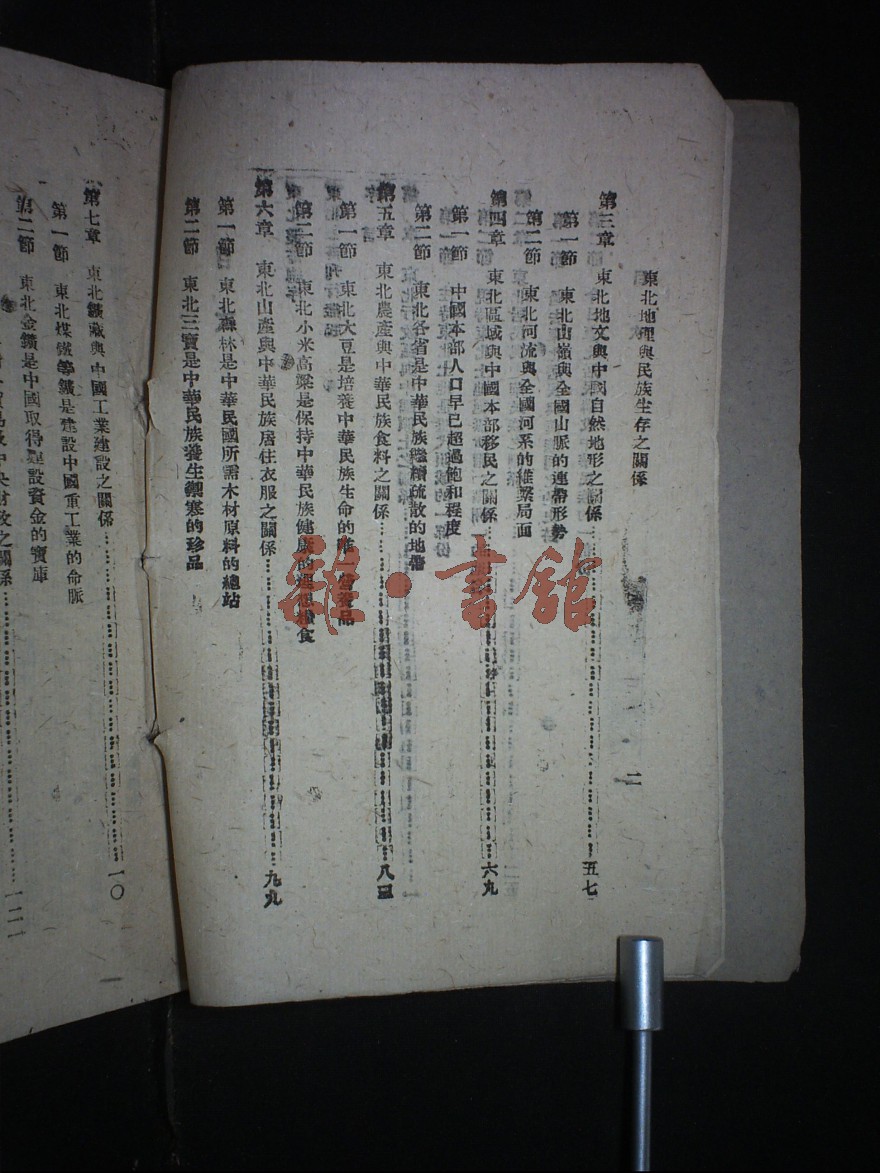 東北地理與民族生存之關係
二
第三章 東北地文與中國自然地形之關係……五七
第一節 東北山嶺與全國山脈的連帶形勢
第二節 東北河流與全國河系的維繫局面
第四章 東北區域與中國本部移民之關係……六九
第一節 中國本部人口早已超過飽和程度
第二節 東北各省是中華民族繼續疏散的地帶
第五章 東北農產與中華民族食料之關係……八三
第一節 東北大豆是培養中華民族生命的唯一營養品
第二節 東北小米高粱是保持中華民族健康的理想糧食
第六章 東北山產與中華民族居住衣服之關係……九九
第一節 東北森林是中華民國所需木材原料的總站
第二節 東北三寶是中華民族養生禦寒的珍品
第七章 東北鑛藏與中國工業建設之關係……一〇
第一節 東北煤鐵等鑛是建設中國重工業的命脈
第二節 東北金鑛是中國取得建設資金的寶庫
之關係……一二一
雜·書館